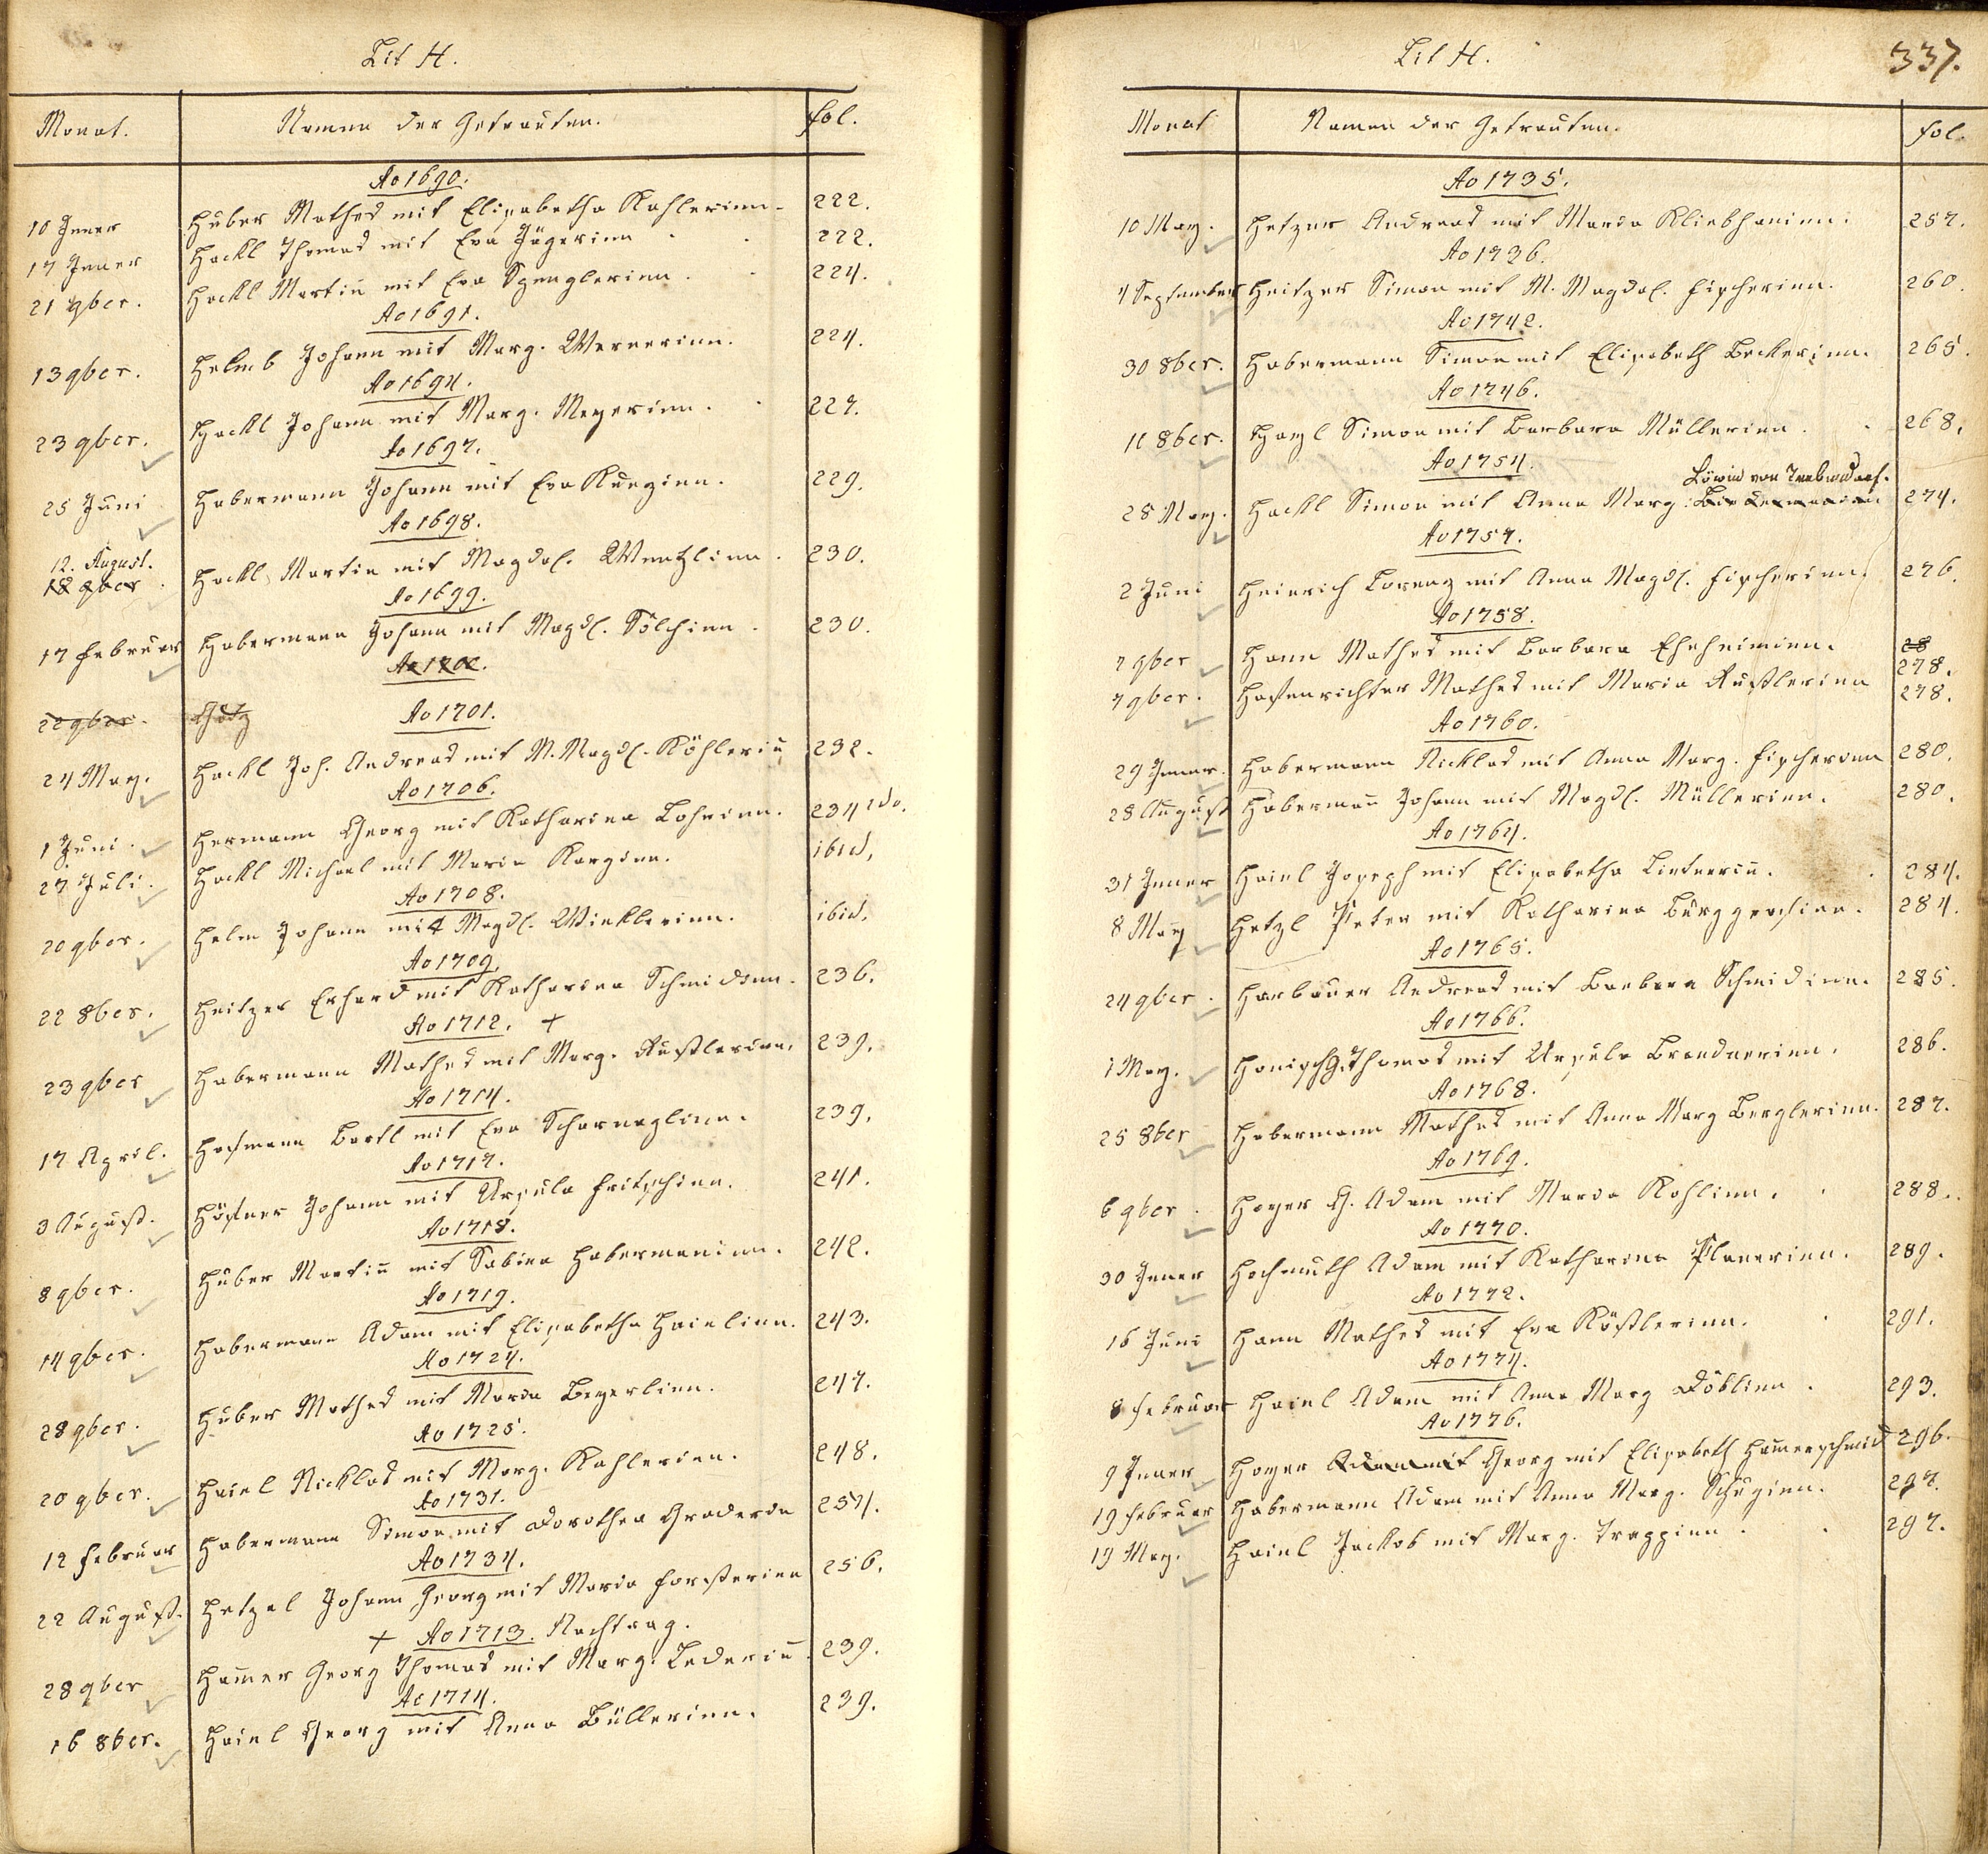 Lit H.
Monat. Namen der Getrauten. fol.
Ao 1690.
10 Jener Huber Mathes mit Elisabetha Kahlerinn. 222.
17 Jener Hackl Thomas mit Eva Jägerinn 222.
21 9ber. Hackl Martin mit Eva Spenglerinn. 224.
Ao 1691.
13 9ber. Helmb Johann mit Marg. Wernerinn. 224.
Ao 1694.
23 9ber. Hackl Johann mit Marg. Meyerinn. 227.
Ao 1697.
25 Juni Habermann Johann mit Eva 229.
Ao 1698.
12. August.
18 9ber Hackl Martin mit Magdal. Wentzlinn. 230.
Ao 1699.
17 Februar Habermann Johann mit Magdl. Sölchinn. 230.
Ao 1700.
22 9ber. Götz
Ao 1701.
24 May. Hackl Joh. Andreas mit M. Magdl. Köhlerin̄ 232.
Ao 1706.
1 Juni. Hermann Georg mit Katharina Lohrinn. 234 2do.
27 Juli. Hackl Michael mit Maria Karginn. ibid.
Ao 1708.
20 9ber. Helm Johann mit Magdl. Winklerinn. ibid.
Ao 1709.
22 8ber. Heitzer Erhard mit Katharina Schmidinn. 236.
Ao 1712. +
23 9ber Habermann Mathes mit Marg. Rustlerinn. 239.
Ao 1714.
17 April. Hofmann Bartl mit Eva Scharnaglinn. 239.
Ao 1717.
3 August. Höfner Johann mit Ursula Fritschinn. 241.
Ao 1718.
8 9ber. Huber Martin̄ mit Sabina Habermaninn. 242.
Ao 1719.
14 9ber. Habermann Adam mit Elisabetha Hainlinn. 243.
Ao 1724.
28 9ber. Huber Mathes mit Maria Beyerlinn. 247.
Ao 1725.
20 9ber. Hainl Nicklas mit Marg. Kahlerinn. 248.
Ao 1731.
12 Februar Habermann Simon mit Dorothea Graderin 254.
Ao 1734.
22 August. Hetzel Johann Georg mit Maria Forsterinn 256.
+ Ao 1713. Nachtrag.
28 9ber Ham̄er Georg Thomas mit Marg. Lederin̄. 239.
Ao 1714.
16 8ber. Hainl Georg mit Anna Büllerinn. 239.
Lit H. 337.
Monat Namen der Getrauten. fol.
Ao 1735.
10 May. Hetzer Andreas mit Maria Kliebhaninn. 257.
Ao 1736.
4 September Heitzer Simon mit M. Magdal. Fischerinn. 260.
Ao 1742.
30 8ber. Habermann Simon mit Elisabeth Beckerinn. 265.
Ao 1746.
11 8ber. Hayl Simon mit Barbara Müllerinn. 268.
Ao 1754.
Löwin von
28 May. Hackl Simon mit Anna Marg: 274.
Ao 1757.
2 Juni Heinrich Lorenz mit Anna Magdl. Fischerinn. 276.
Ao 1758.
28
7 9ber Hann Mathes mit Barbara Eheheiminn. 278.
7 9ber. Hasenrichter Mathes mit Maria Rustlerinn 278.
Ao 1760.
29 Jener. Habermann Nicklas mit Anna Marg. Fischerinn 280.
28 August Haberman̄ Johann mit Magdl. Müllerinn. 280.
Ao 1764.
31 Jener Hainl Joseph mit Elisabetha Lintnerin̄. 284.
8 May Hetzl Peter mit Katharina Burggrafinn. 284.
Ao 1765.
24 9ber. Harbauer Andreas mit Barbara Schmidinn. 285.
Ao 1766.
1 May. Honisch G. Thomas mit Ursula Brandnerinn. 286.
Ao 1768.
25 8ber Habermann Mathes mit Anna Marg Berglerinn. 287.
Ao 1769.
6 9ber. Hoyer G. Adam mit Maria Kohlinn. 288.
Ao 1770.
30 Jener Hochmuth Adam mit Katharina Planerinn. 289.
Ao 1772.
16 Juni Hann Mathes mit Eva Köstlerinn. 291.
Ao 1774.
8 Februar Hainl Adam mit Anna Marg Döblinn. 293.
Ao 1776.
9 Jener Hoyer Adam mit Georg mit Elisabeth Ham̄erschmid 296.
19 Februar Habermann Adam mit Anna Marg. Schuginn. 297.
19 May. Hainl Jackob mit Marg. Trappinn. 297.